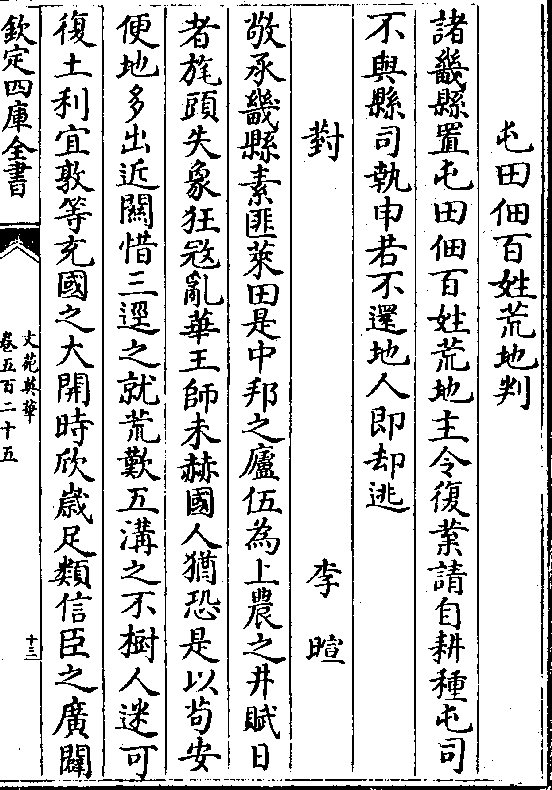 屯田佃百姓荒地判
諸畿縣置屯田佃百姓荒地主令復業請自耕種屯司
不與縣司執申若不還地人即却逃
對 李暄
敬承畿縣素匪萊田是中邦之廬伍為上農之井賦日
者旄頭失象狂寇亂華王師未赫國人猶恐是以苟安
便地多出近關惜三逕之就荒歎五溝之不樹人迷可
復土利宜敦等充國之大開時欣歲足類信臣之廣闢
欽定四庫全書
文苑英華
卷五百二十五
十三